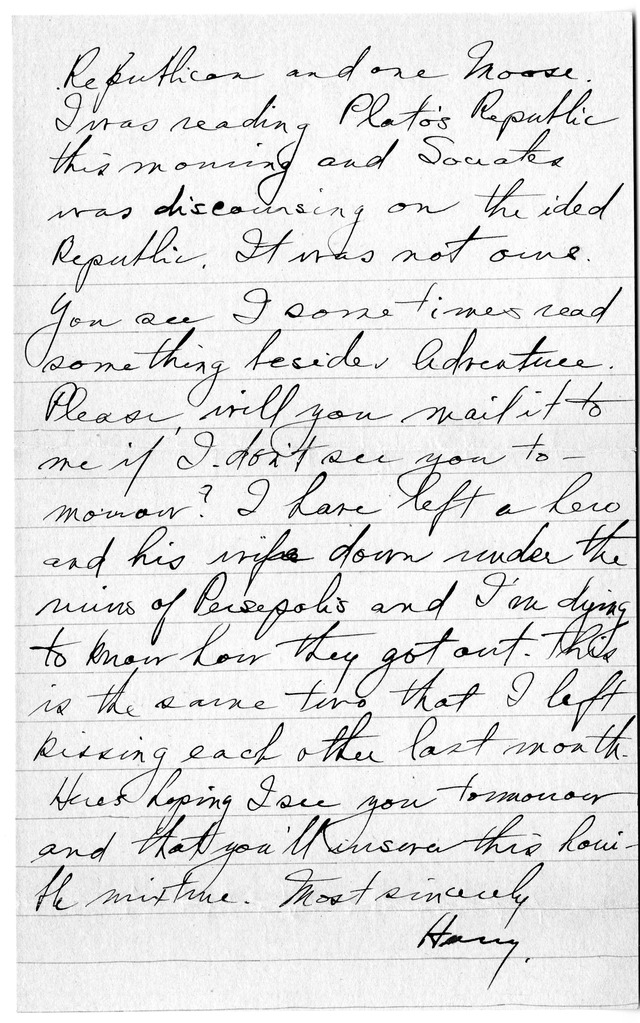 Republican and one Moose.
I was reading Plato's Republic
this morning and Socrates
was discoursing on the ideal
Republic. It was not ours.
You see I sometimes read
something besides Adventure.
Please, will you mail it to
me if I don't see you to-
morrow? I have left a hero
and his wife down under the
ruins of Persepolis and I'm dying
to know how they got out. This
is the same two that I left
kissing each other last month.
Here's hoping I see you tomorrow
and that you'll answer this horri-
ble mixture. Most sincerely
Harry.